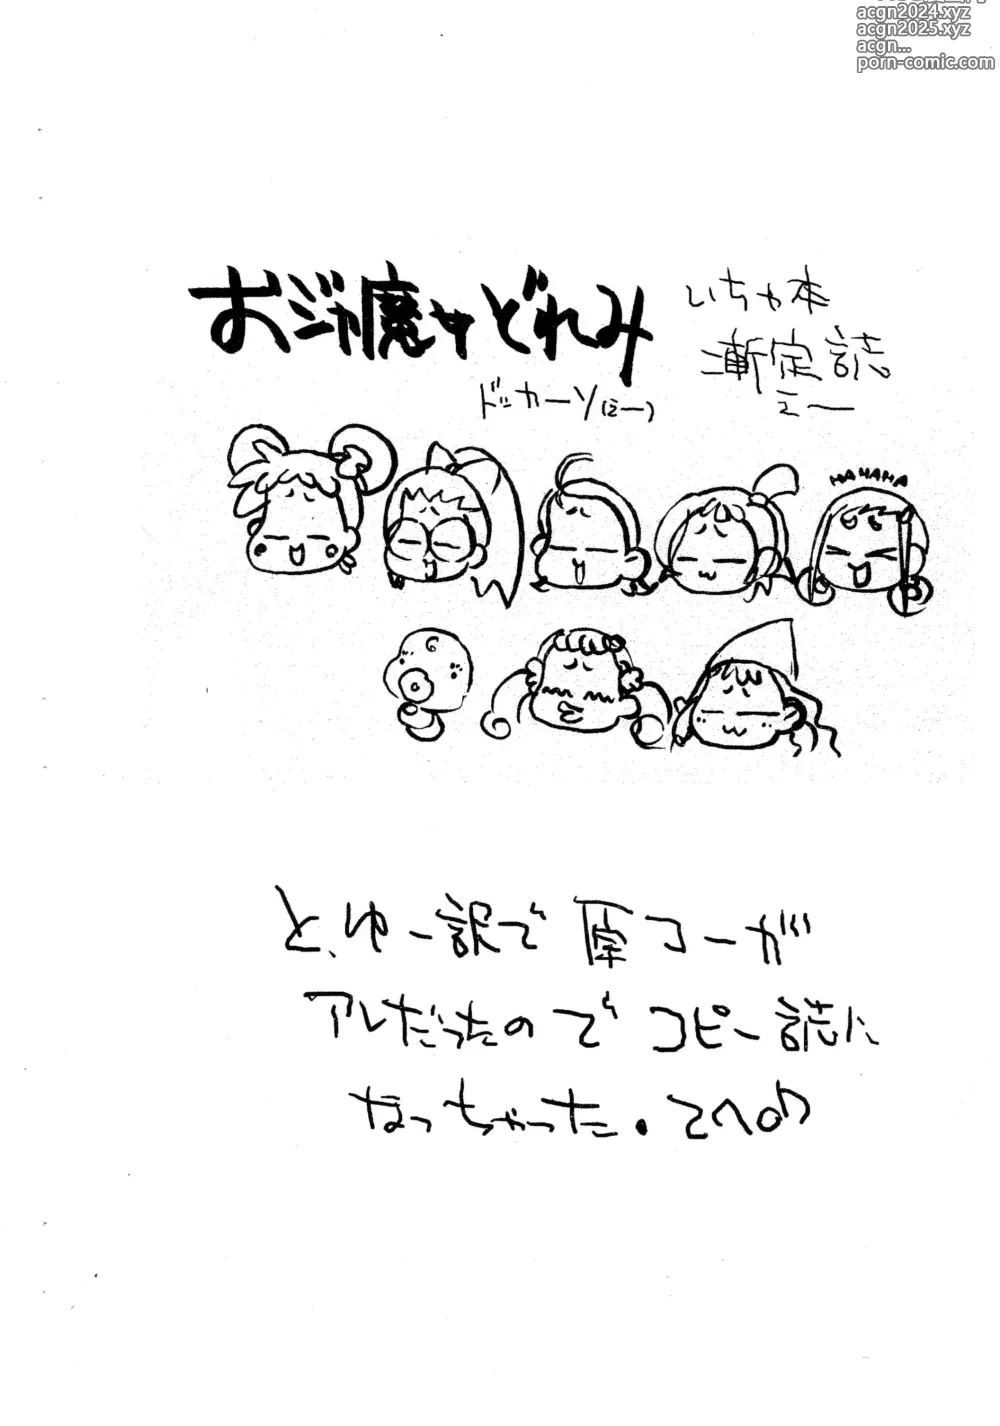 acgn2024.xyz
acgn2025.xyz
acgn...
porn-comic.com
おジャ魔女どれみ
いちゃ本
漸定誌
えー
ドッカーソ(えー)
HAHAHA
と、ゆー訳で原コーが
アレだったのでコピー誌に
なっちゃった。